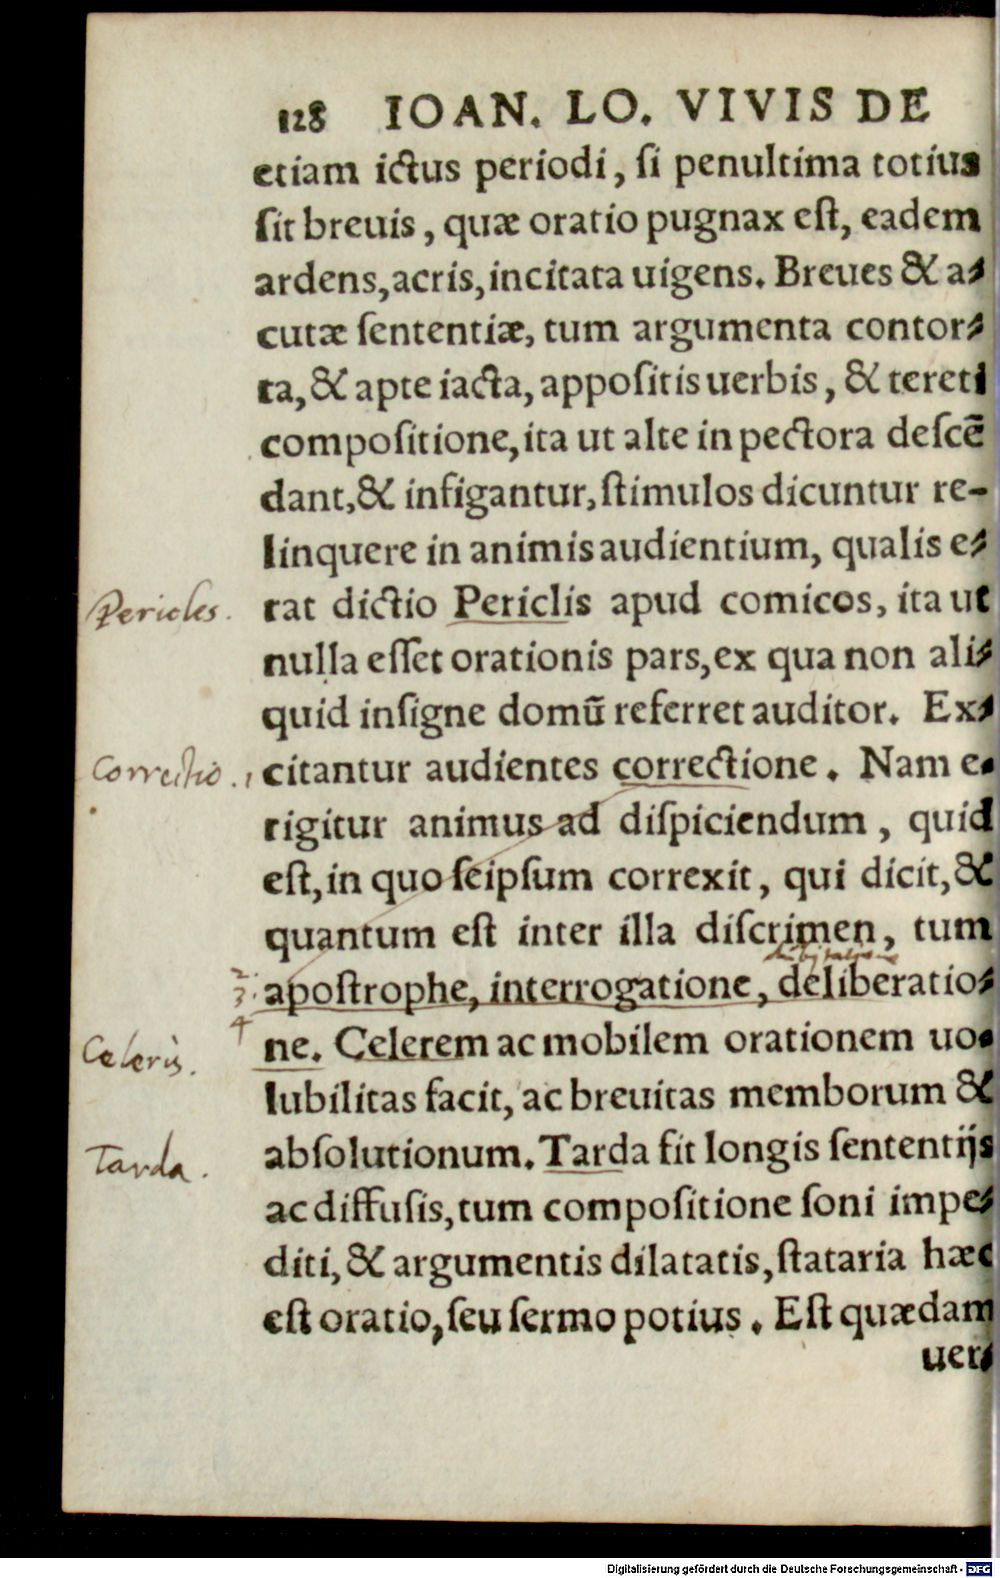 128 IOAN. LO. VIVIS DE
etiam ictus periodi, ſi penultima totius
ſit breuis, quæ oratio pugnax eſt, eadem
ardens, acris, incitata uigens. Breues & a⸗
cutæ ſententiæ, tum argumenta contor⸗
ta, & apte iacta, appoſitis uerbis, & tereti
compoſitione, ita ut alte in pectora deſcē
dant, & infigantur, ſtimulos dicuntur re-
linquere in animis audientium, qualis e⸗
Pericles. rat dictio Periclis apud comicos, ita ut
nulla eſſet orationis pars, ex qua non ali⸗
quid inſigne domū referret auditor. Ex⸗
Correctio. 1 citantur audientes correctione. Nam e⸗
rigitur animus ad diſpiciendum, quid
eſt, in quo ſeipſum correxit, qui dicit, &
quantum eſt inter illa diſcrimen, tum
2. 3. apoſtrophe, interrogatione, deliberatio⸗
4
Celeris. ne. Celerem ac mobilem orationem uo⸗
lubilitas facit, ac breuitas memborum &
Tarda. abſolutionum. Tarda fit longis ſententijs
ac diffuſis, tum compoſitione ſoni impe⸗
diti, & argumentis dilatatis, ſtataria hæc
eſt oratio, ſeu ſermo potius. Eſt quædam
uer⸗
Digitalisierung gefördert durch die Deutsche Forschungsgemeinschaft - DFG